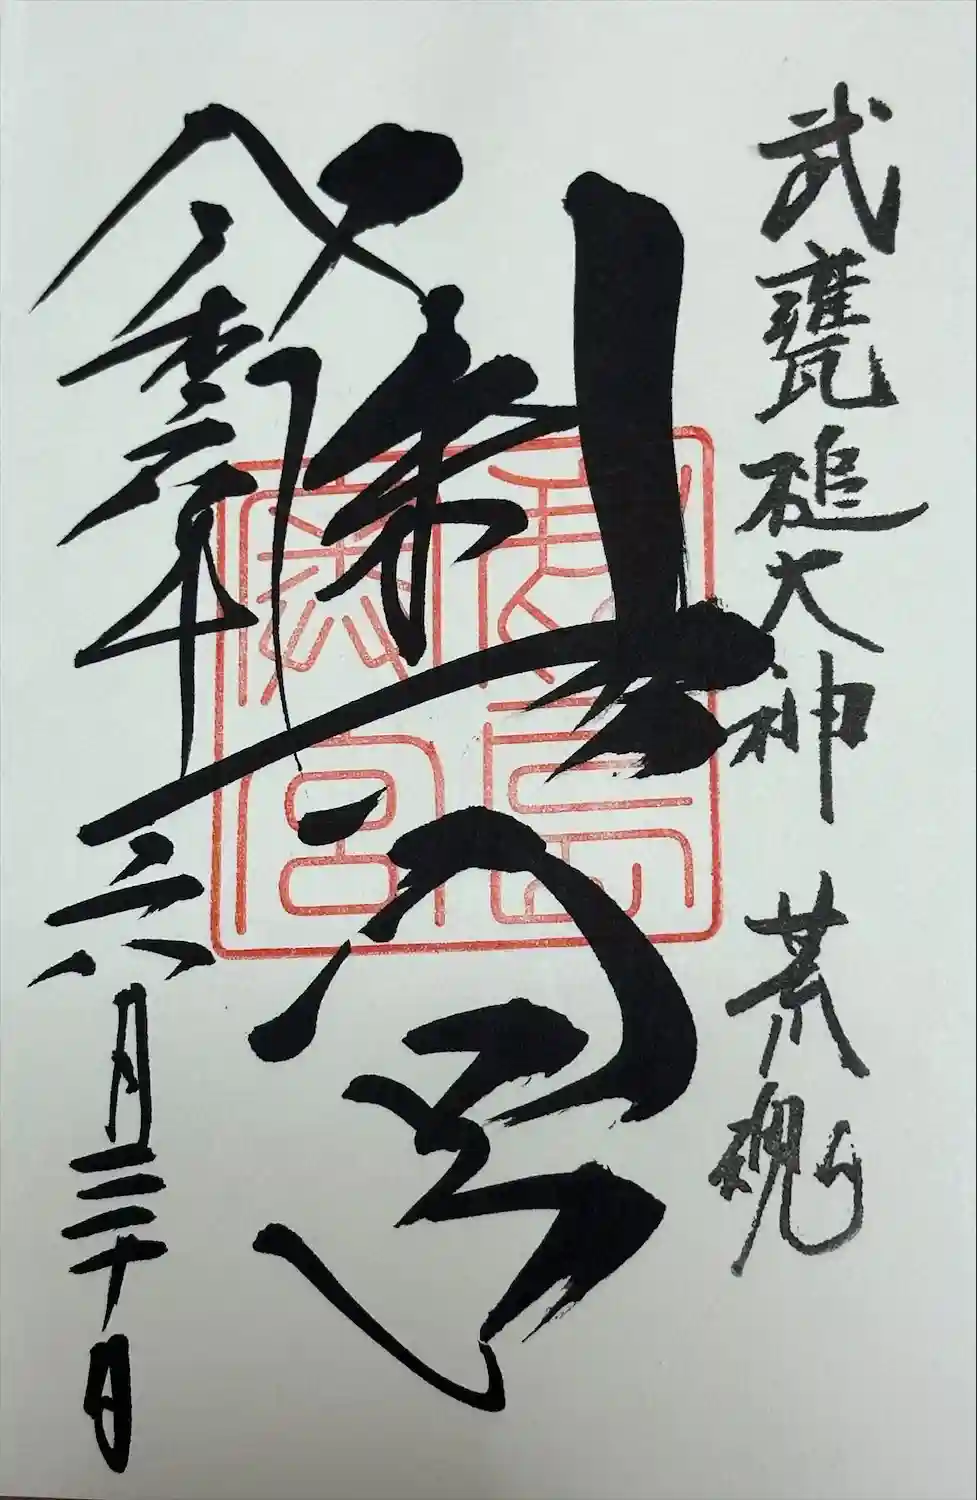 武甕槌大神 荒魂
奥宮
鹿島
奥宮
令和六年六月三十日